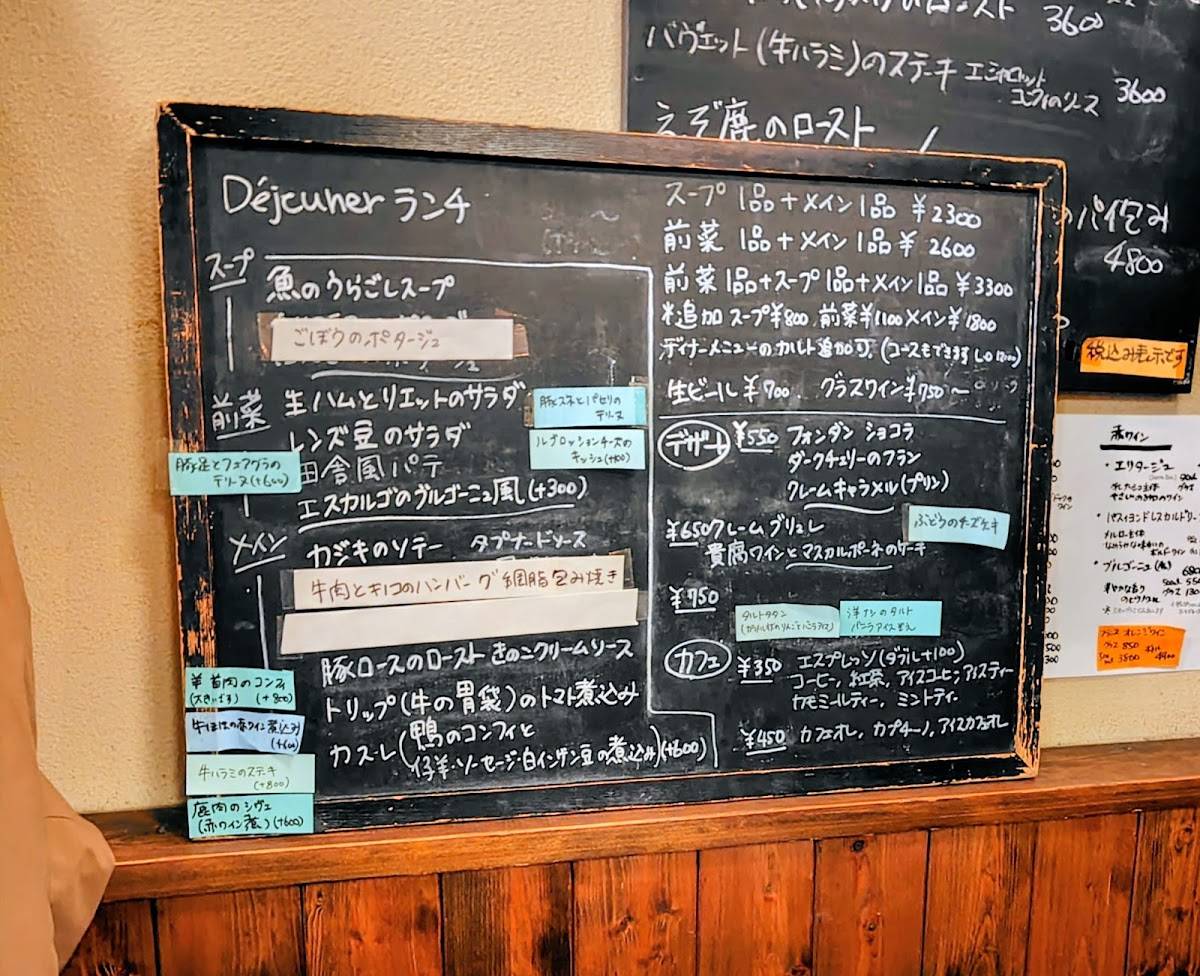 Déjeuner ランチ
スープ
魚のうらごしスープ
ごぼうのポタージュ
前菜
生ハムとリエットのサラダ
レンズ豆のサラダ
田舎風パテ
エスカルゴのブルゴーニュ風(+300)
豚スネとパセリの
テリーヌ
ルブロッションチーズの
キッシュ(+400)
豚足とフォアグラの
テリーヌ(+600)
メイン
カジキのソテー タプナードソース
牛肉とキノコのハンバーグ網脂包み焼き
豚ロースのロースト きのこクリームソース
トリップ(牛の胃袋)のトマト煮込み
カスーレ(鴨のコンフィと
仔羊・ソーセージ・白インゲン豆の煮込み)(+600)
羊首肉のコンフィ
(+800)
牛ほほの赤ワイン煮込み
(+600)
牛ハラミのステーキ
(+800)
鹿肉のシヴェ
(赤ワイン煮)(+600)
スープ1品+メイン1品 ¥2300
前菜 1品+メイン1品 ¥2600
前菜1品+スープ1品+メイン1品 ¥3300
※追加 スープ¥800 前菜¥1100 メイン¥1800
ディナーメニューのカルト追加可(コースもできます
生ビール ¥700 グラスワイン¥750〜
デザート ¥550 フォンダン ショコラ
ダークチェリーのフラン
クレームキャラメル(プリン)
¥650 クレームブリュレ
貴腐ワインとマスカルポーネのケーキ
ぶどうのチーズケーキ
¥750
タルトタタン
洋ナシのタルト
バニラアイス
カフェ ¥350 エスプレッソ(ダブル+100)
コーヒー, 紅茶, アイスコーヒー, アイスティー
カモミールティー, ミントティー
¥450 カフェオレ, カプチーノ, アイスカフェオレ
のロースト 3600
バヴェット(牛ハラミ)のステーキ エシャロット
コンフィのソース 3600
えぞ鹿のロースト
のパイ包み
4800
税込み表示です
赤ワイン
・エリタージュ
・ブルゴーニュ
グラス オレンジワイン
グラス 850